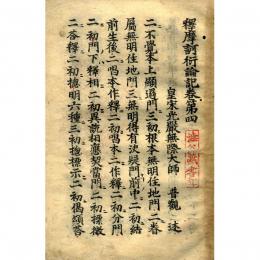 釋摩訶衍論記卷第四
皇家光嚴無際大師 普觀 述
二不覺本上顯道門三初根本無明住地門二眷
屬無明住地門三無明得有決疑門前中二初結
前生後二唱本作釋二初唱本二作釋二初分門
二初門下釋相二初異說相應契當門二初總徵
二答釋二初總明六種三初總標示二初偈頌答